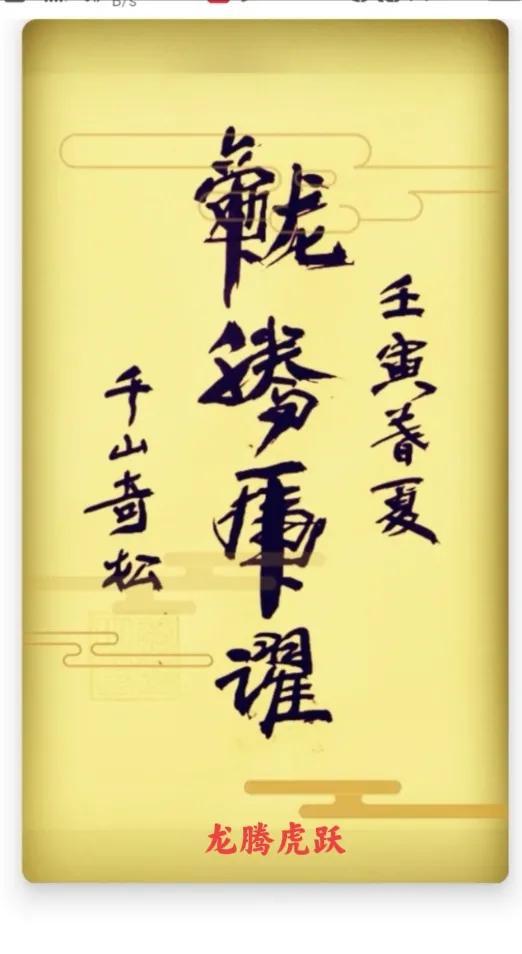 B/s
壬寅春夏
龍騰虎躍
千山奇松
龙腾虎跃